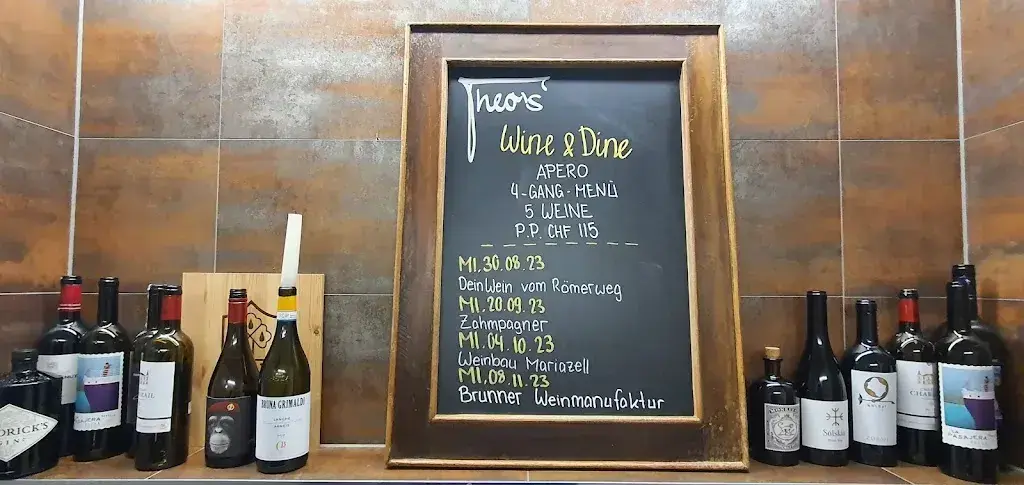 Theo's
Wine & Dine
APERO
4-GANG-MENÜ
5 WEINE
P.P. CHF 115
MI, 30.08.23
DeinWein vom Römerweg
MI, 20.09.23
Zahmpagner
MI, 04.10.23
Weinbau Mariazell
MI, 08.11.23
Brunner Weinmanufaktur
DRICK'S
GIN
BRUNA GRIMALDI
Solskin
CHABR
LA
PASAJERA